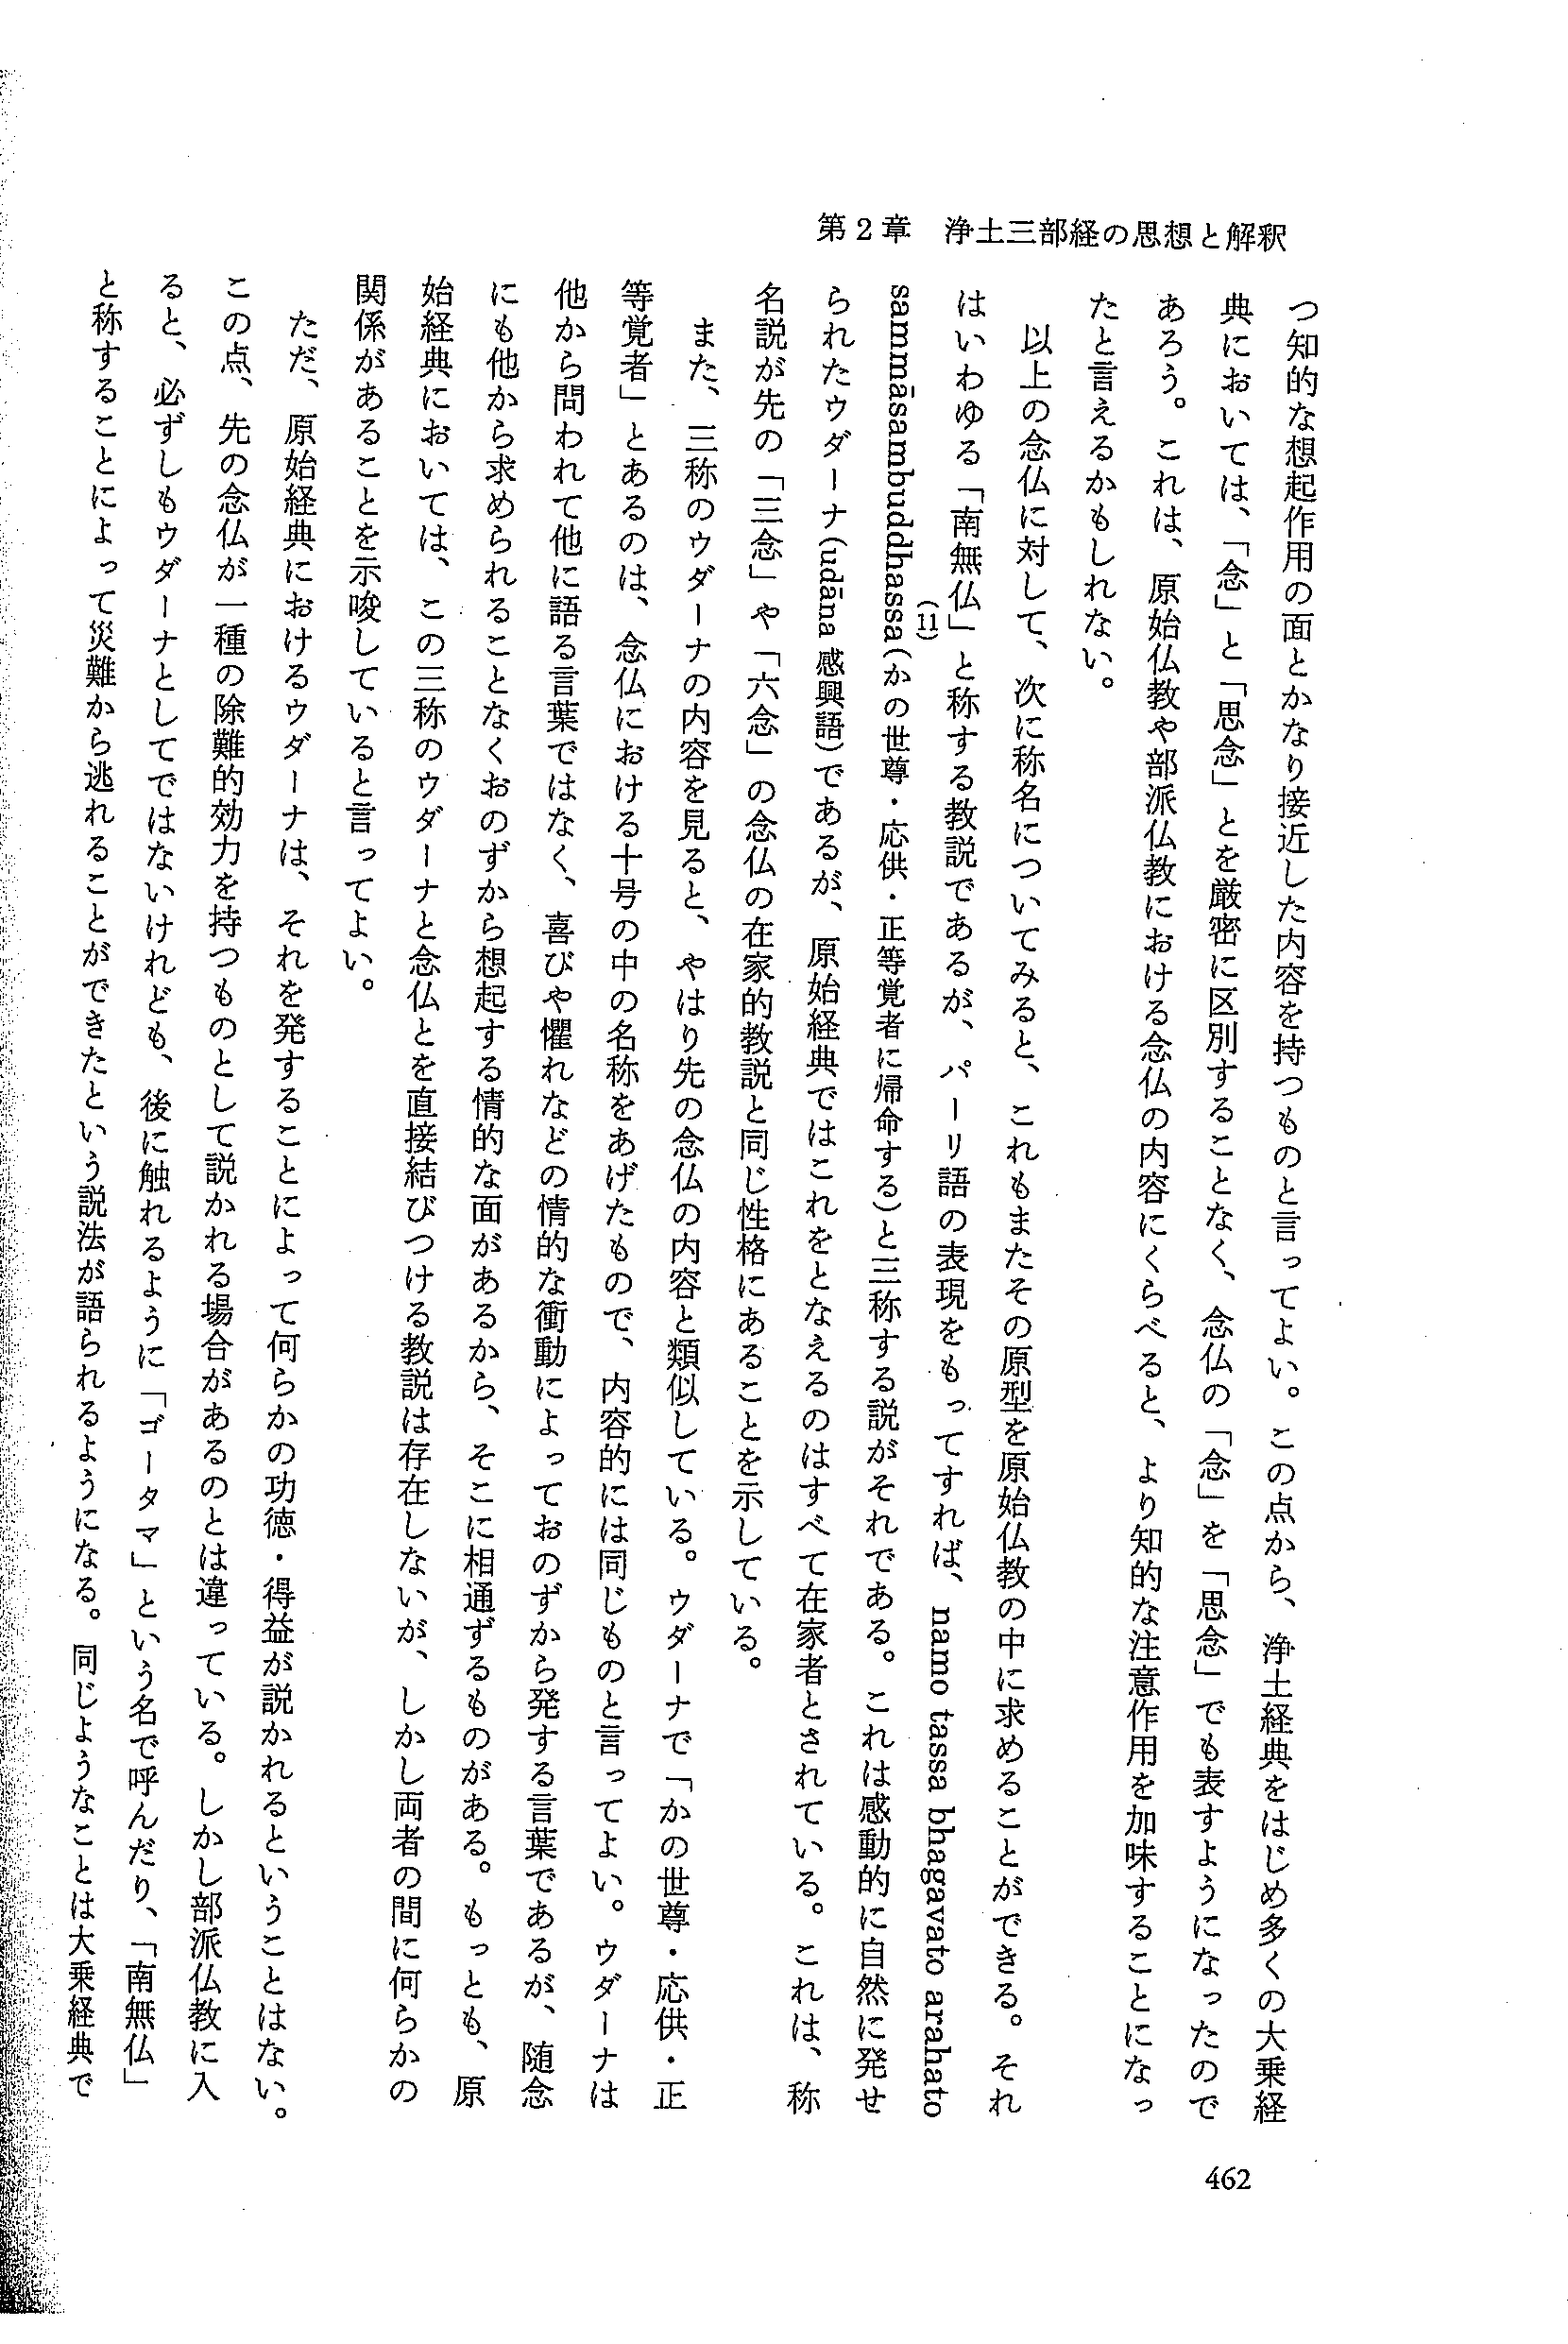 第2章　浄土三部経の思想と解釈
つ知的な想起作用の面とかなり接近した内容を持つものと言ってよい。この点から、浄土経典をはじめ多くの大乗経
典においては、「念」と「思念」とを厳密に区別することなく、念仏の「念」を「思念」でも表すようになったので
あろう。これは、原始仏教や部派仏教における念仏の内容にくらべると、より知的な注意作用を加味することになっ
たと言えるかもしれない。
　以上の念仏に対して、次に称名についてみると、これもまたその原型を原始仏教の中に求めることができる。それ
はいわゆる「南無仏」と称する教説であるが、パーリ語の表現をもってすれば、namo tassa bhagavato arahato
sammāsambuddhassa(かの世尊・応供・正等覚者に帰命する)と三称する説がそれである。(11)これは感動的に自然に発せ
られたウダーナ(udāna 感興語)であるが、原始経典ではこれをとなえるのはすべて在家者とされている。これは、称
名説が先の「三念」や「六念」の念仏の在家的教説と同じ性格にあることを示している。
　また、三称のウダーナの内容を見ると、やはり先の念仏の内容と類似している。ウダーナで「かの世尊・応供・正
等覚者」とあるのは、念仏における十号の中の名称をあげたもので、内容的には同じものと言ってよい。ウダーナは
他から問われて他に語る言葉ではなく、喜びや懼れなどの情的な衝動によっておのずから発する言葉であるが、随念
にも他から求められることなくおのずから想起する情的な面があるから、そこに相通ずるものがある。もっとも、原
始経典においては、この三称のウダーナと念仏とを直接結びつける教説は存在しないが、しかし両者の間に何らかの
関係があることを示唆していると言ってよい。
　ただ、原始経典におけるウダーナは、それを発することによって何らかの功徳・得益が説かれるということはない。
この点、先の念仏が一種の除難的効力を持つものとして説かれる場合があるのとは違っている。しかし部派仏教に入
ると、必ずしもウダーナとしてではないけれども、後に触れるように「ゴータマ」という名で呼んだり、「南無仏」
と称することによって災難から逃れることができたという説法が語られるようになる。同じようなことは大乗経典で
462